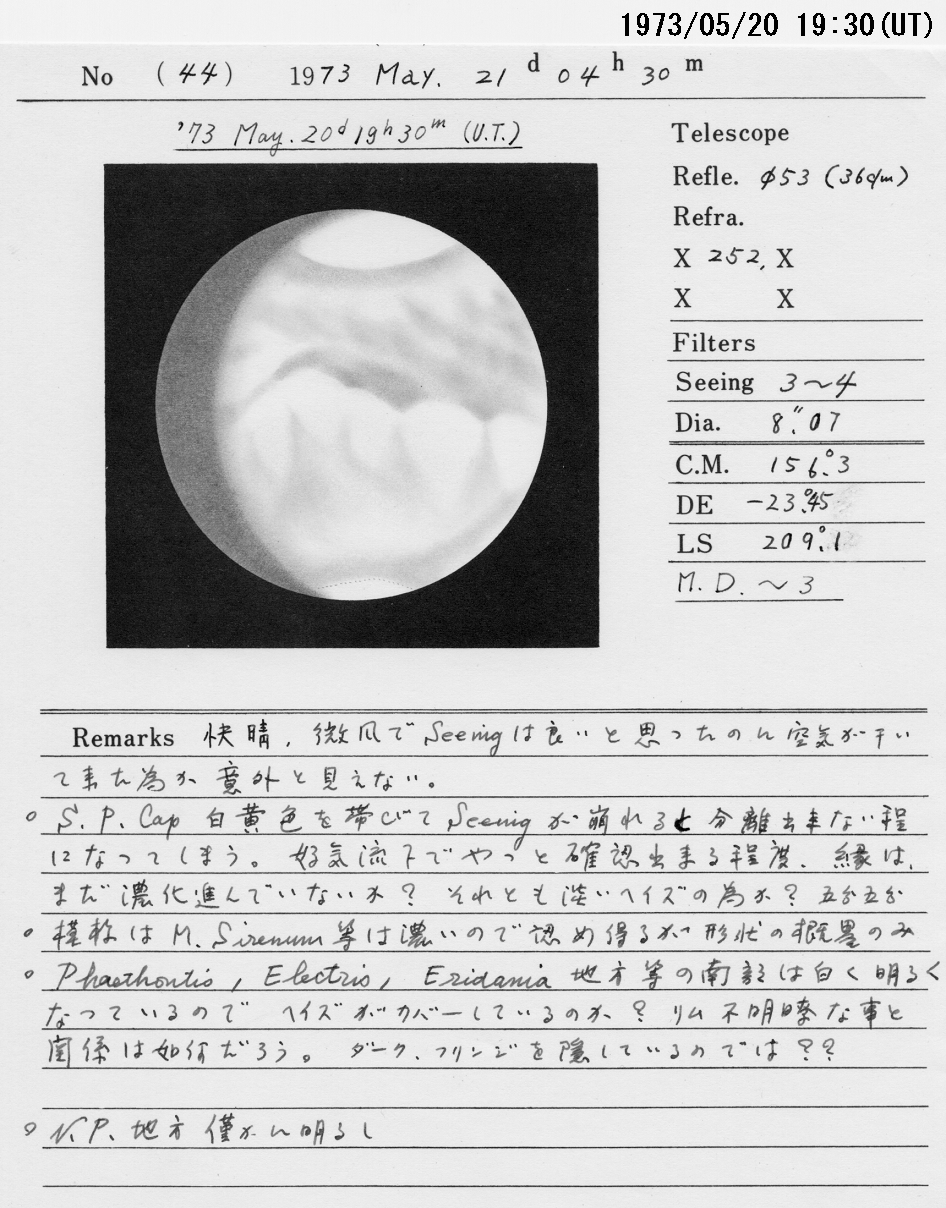 1973/05/20 19:30(UT)
No (44) 1973 May. 21 d 04 h 30 m
'73 May. 20d 19h 30m (U.T.)
Telescope
Refle. φ53 (36c/m)
Refra.
X 252, X
X X
Filters
Seeing 3~4
Dia. 8".07
C.M. 156°.3
DE -23°.45
LS 209°.1
M.D. ~3
Remarks 快晴, 微風でSeeingは良いと思ったのに空気が干い
て来た為か意外と見えない。
○ S.P.Cap 白黄色を帯びてSeeingが崩れると分離出来ない程
になってしまう。好気流下でやっと確認出来る程度、縁は、
まだ濃化進んでいないか? それとも淡いヘイズの為か? 五分五分
○ 模様はM.Sirenum等は濃いので認め得るが形状の概畧のみ
○ Phaethontis, Electris, Eridania 地方等の南部は白く明るく
なっているので ヘイズがカバーしているのか? リム不明瞭な事と
関係は如何だろう。 ダーク、フリンジを隠しているのでは??
○ N.P. 地方 僅かに明るし